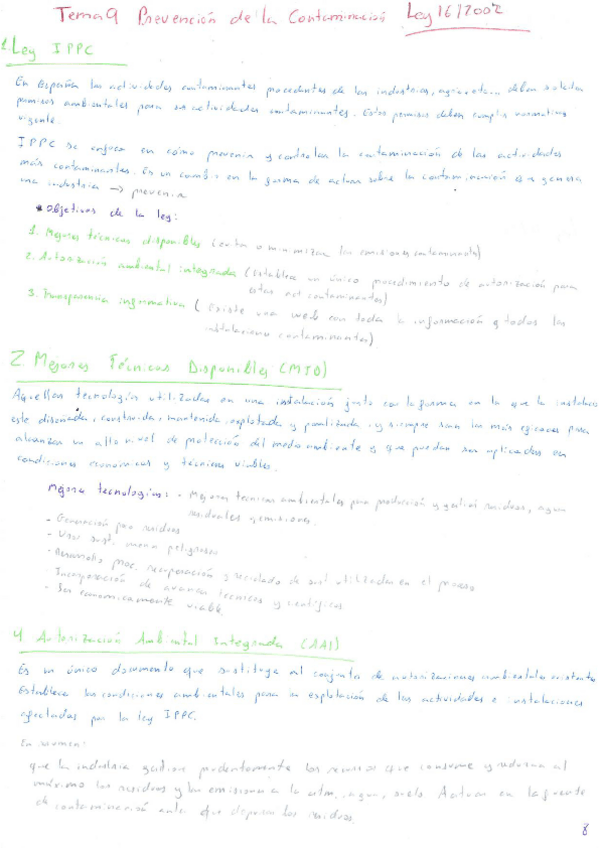 Tema 9 Prevención de la Contaminación Ley 16/2002
1. Ley IPPC
En España las actividades contaminantes procedentes de las industrias, agric, etc... deben solicitar
permisos ambientales para sus actividades contaminantes. Estos permisos deben cumplir normativa
vigente.
IPPC se enfoca en cómo prevenir y controlar la contaminación de las actividades
más contaminantes. Es un cambio en la forma de actuar sobre la contaminación que genera
una industria → prevenir
* Objetivos de la ley:
1. Mejores técnicas disponibles (evitar o minimizar las emisiones contaminantes)
2. Autorización ambiental integrada (Establece un único procedimiento de autorización para
estas act contaminantes)
3. Transparencia informativa (Existe una web con toda la información y todas las
instalaciones contaminantes).
2. Mejores Técnicas Disponibles (MTD)
Aquellas tecnologías utilizadas en una instalación junto con la forma en la que la instalación
este diseñada, construida, mantenida, explotada y paralizada, y siempre sean las más eficaces para
alcanzar un alto nivel de protección del medio ambiente y que puedan ser aplicadas en
condiciones económicas y técnicas viables.
Mejores tecnologías: - Mejores técnicas ambientales para producción y gestión residuos, aguas
residuales y emisiones.
- Generación pocos residuos
- Usar sust. menos peligrosas
- Desarrollo proc. recuperación y reciclado de sust utilizadas en el proceso
- Incorporación de avances técnicos y científicos
- Ser económicamente viable
4 Autorización Ambiental Integrada (AAI)
Es un único documento que sustituye al conjunto de autorizaciones ambientales existentes
Establece las condiciones ambientales para la explotación de las actividades e instalaciones
afectadas por la ley IPPC.
En resumen:
que la industria gestione prudentemente los recursos que consume y reduzca al
máximo los residuos y las emisiones a la atm, agua, suelo. Actuar en la fuente
de contaminación antes que depurar los residuos.
8